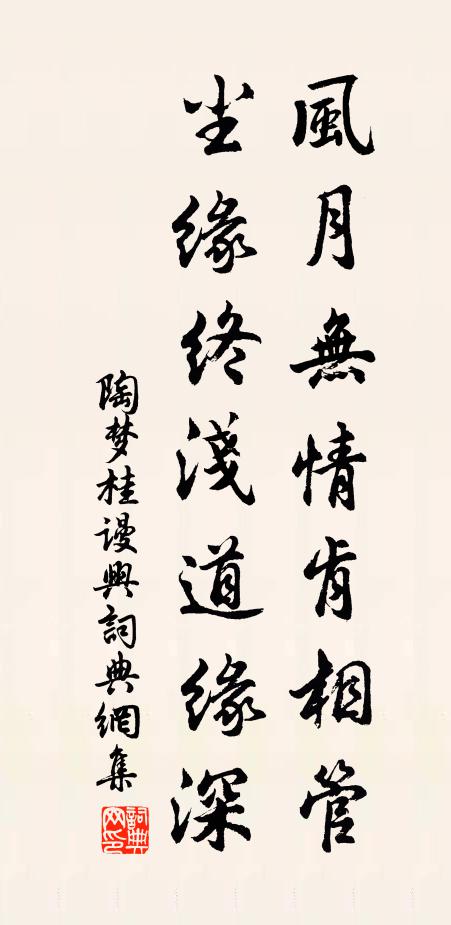 風月無情肯相管
尘緣終淺道緣深
陶梦桂謾興詞典網集
詞典网印